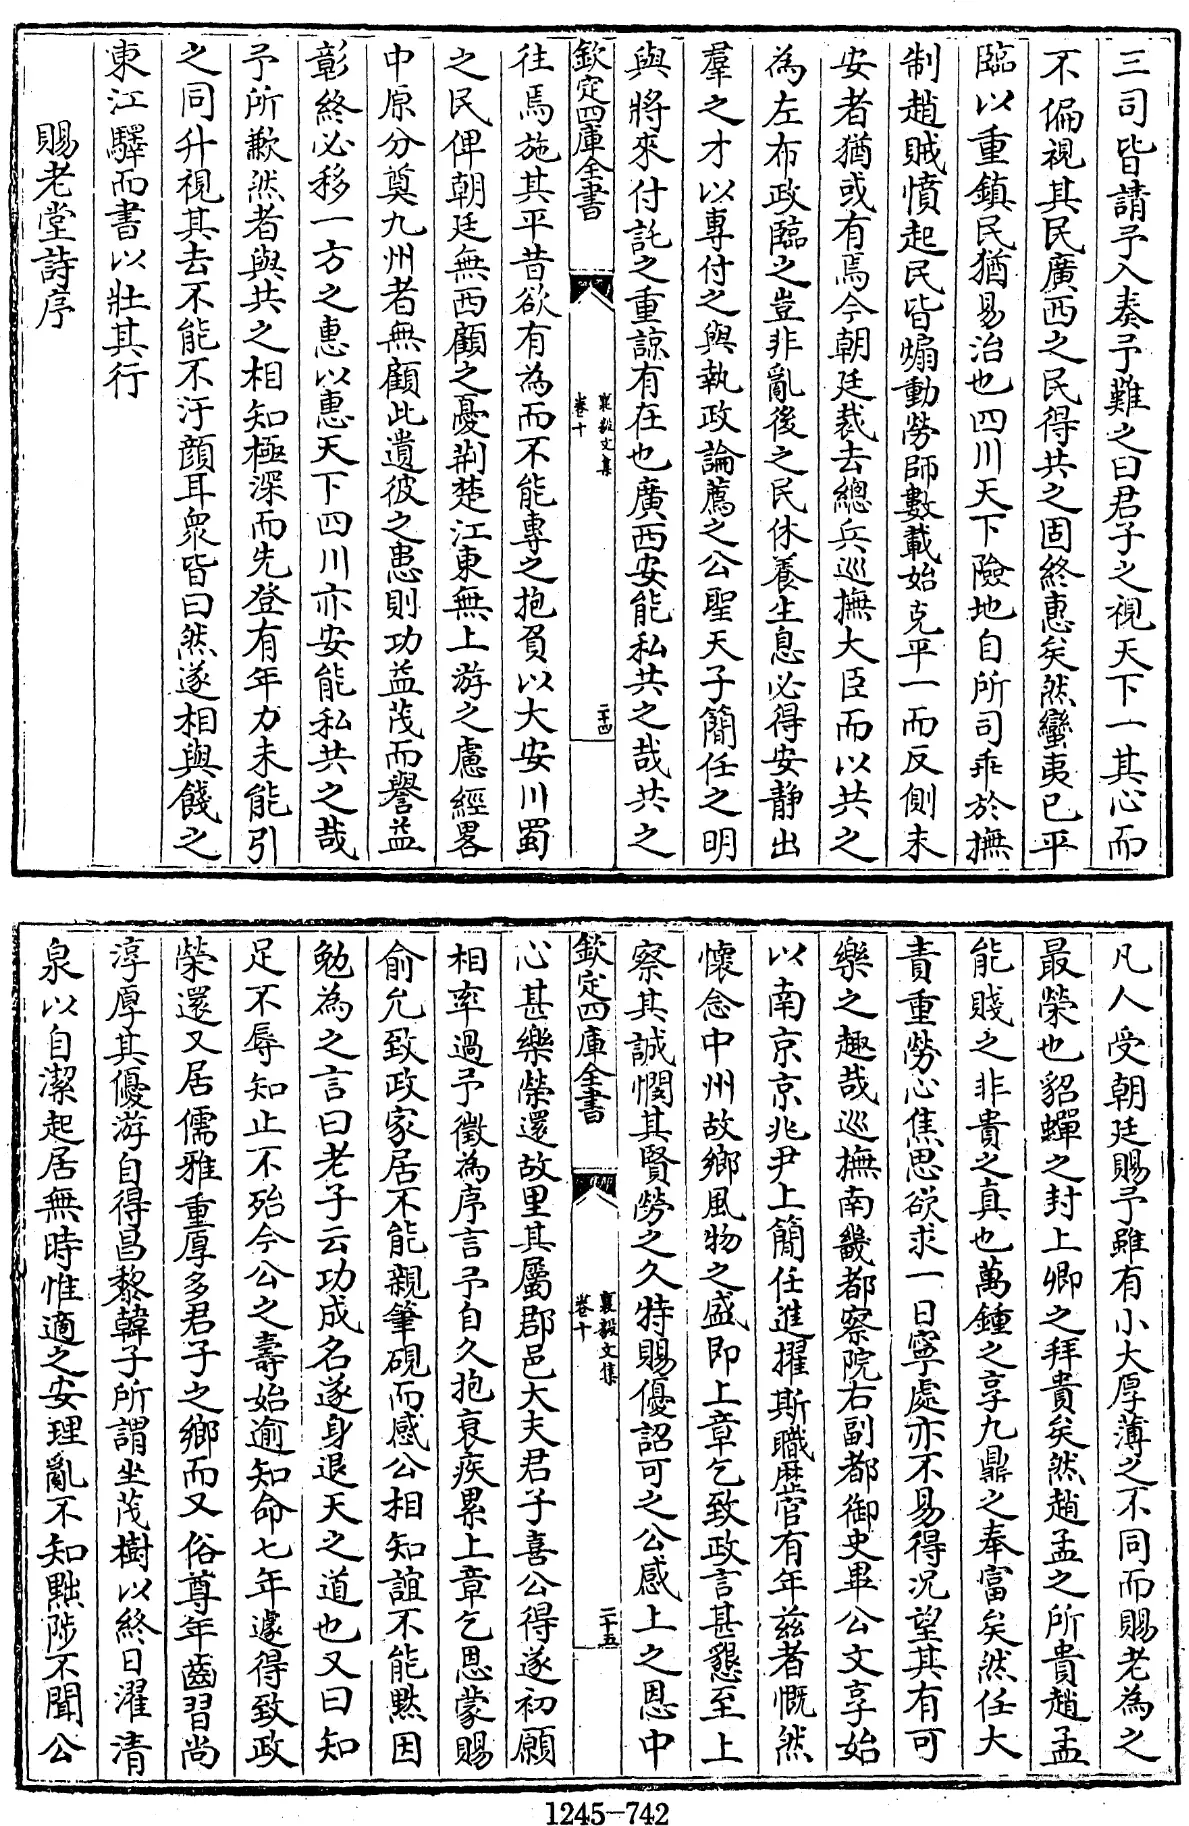 三司皆請予入奏予難之曰君子之視天下一其心而
不偏視其民廣西之民得共之固終惠矣然蠻夷已平
臨以重鎮民猶易治也四川天下險地自所司乖於撫
制趙賊憤起民皆煽動勞師數載始克平一而反側未
安者猶或有焉今朝廷裁去總兵巡撫大臣而以共之
為左布政臨之豈非亂後之民休養生息必得安靜出
羣之才以專付之與執政論薦之公聖天子簡任之明
與將來付託之重諒有在也廣西安能私共之哉共之
欽定四庫全書
襄毅文集
卷十
二十四
往焉施其平昔欲有為而不能專之抱負以大安川蜀
之民俾朝廷無西顧之憂荆楚江東無上游之慮經畧
中原分奠九州者無顧此遺彼之患則功益茂而譽益
彰終必移一方之惠以惠天下四川亦安能私共之哉
予所歉然者與共之相知極深而先登有年力未能引
之同升視其去不能不汗顔耳衆皆曰然遂相與餞之
東江驛而書以壯其行
賜老堂詩序
凡人受朝廷賜予雖有小大厚薄之不同而賜老為之
最榮也貂蟬之封上卿之拜貴矣然趙孟之所貴趙孟
能賤之非貴之真也萬鍾之享九鼎之奉富矣然任大
責重勞心焦思欲求一日寧處亦不易得况望其有可
樂之趣哉巡撫南畿都察院右副都御史畢公文享始
以南京京兆尹上簡任進擢斯職歴官有年兹者慨然
懷念中州故鄉風物之盛即上章乞致政言甚懇至上
察其誠憫其賢勞之久特賜優詔可之公感上之恩中
欽定四庫全書
襄毅文集
卷十
二十五
心甚樂榮還故里其屬郡邑大夫君子喜公得遂初願
相率過予徵為序言予自久抱衰疾累上章乞恩蒙賜
俞允致政家居不能親筆硯而感公相知誼不能默因
勉為之言曰老子云功成名遂身退天之道也又曰知
足不辱知止不殆今公之壽始逾知命七年遽得致政
榮還又居儒雅重厚多君子之鄉而又俗尊年齒習尚
淳厚其優游自得昌黎韓子所謂坐茂樹以終日濯清
泉以自潔起居無時惟適之安理亂不知黜陟不聞公
1245-742